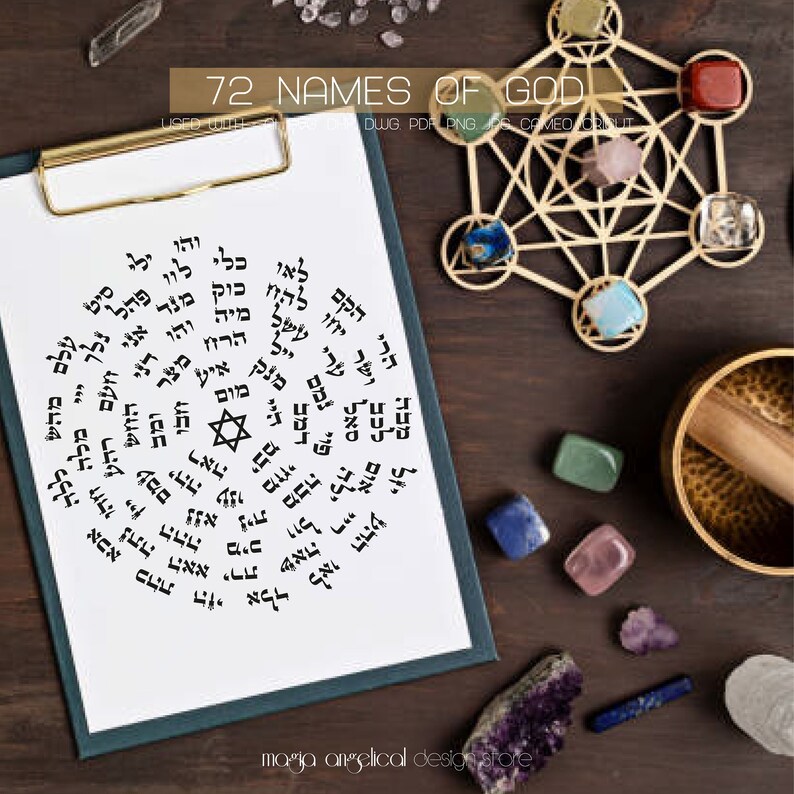 72 NAMES OF GOD
USED WITH DWG, PDF, PNG, JPG, CAMEO, CRICUT
והו
ילי
סיט
עלם
מהש
ללה
אכא
כהת
הזי
אלד
לאו
ההע
יזל
מבה
הרי
הקם
לאו
כלי
לוו
פהל
נלך
ייי
מלה
חהו
נתה
האא
ירת
שאה
ריי
אום
לכב
ושר
יחו
להח
כוק
מנד
אני
חעם
רהע
ייז
ההה
מיכ
וול
ילה
סאל
ערי
עשל
מיה
והו
דני
החש
עמם
ננא
נית
מבה
פוי
נמם
ייל
הרח
מצר
ומב
יהה
ענו
מחי
דמב
מנק
איע
חבו
ראה
יבמ
היי
מום
magia angelical design store